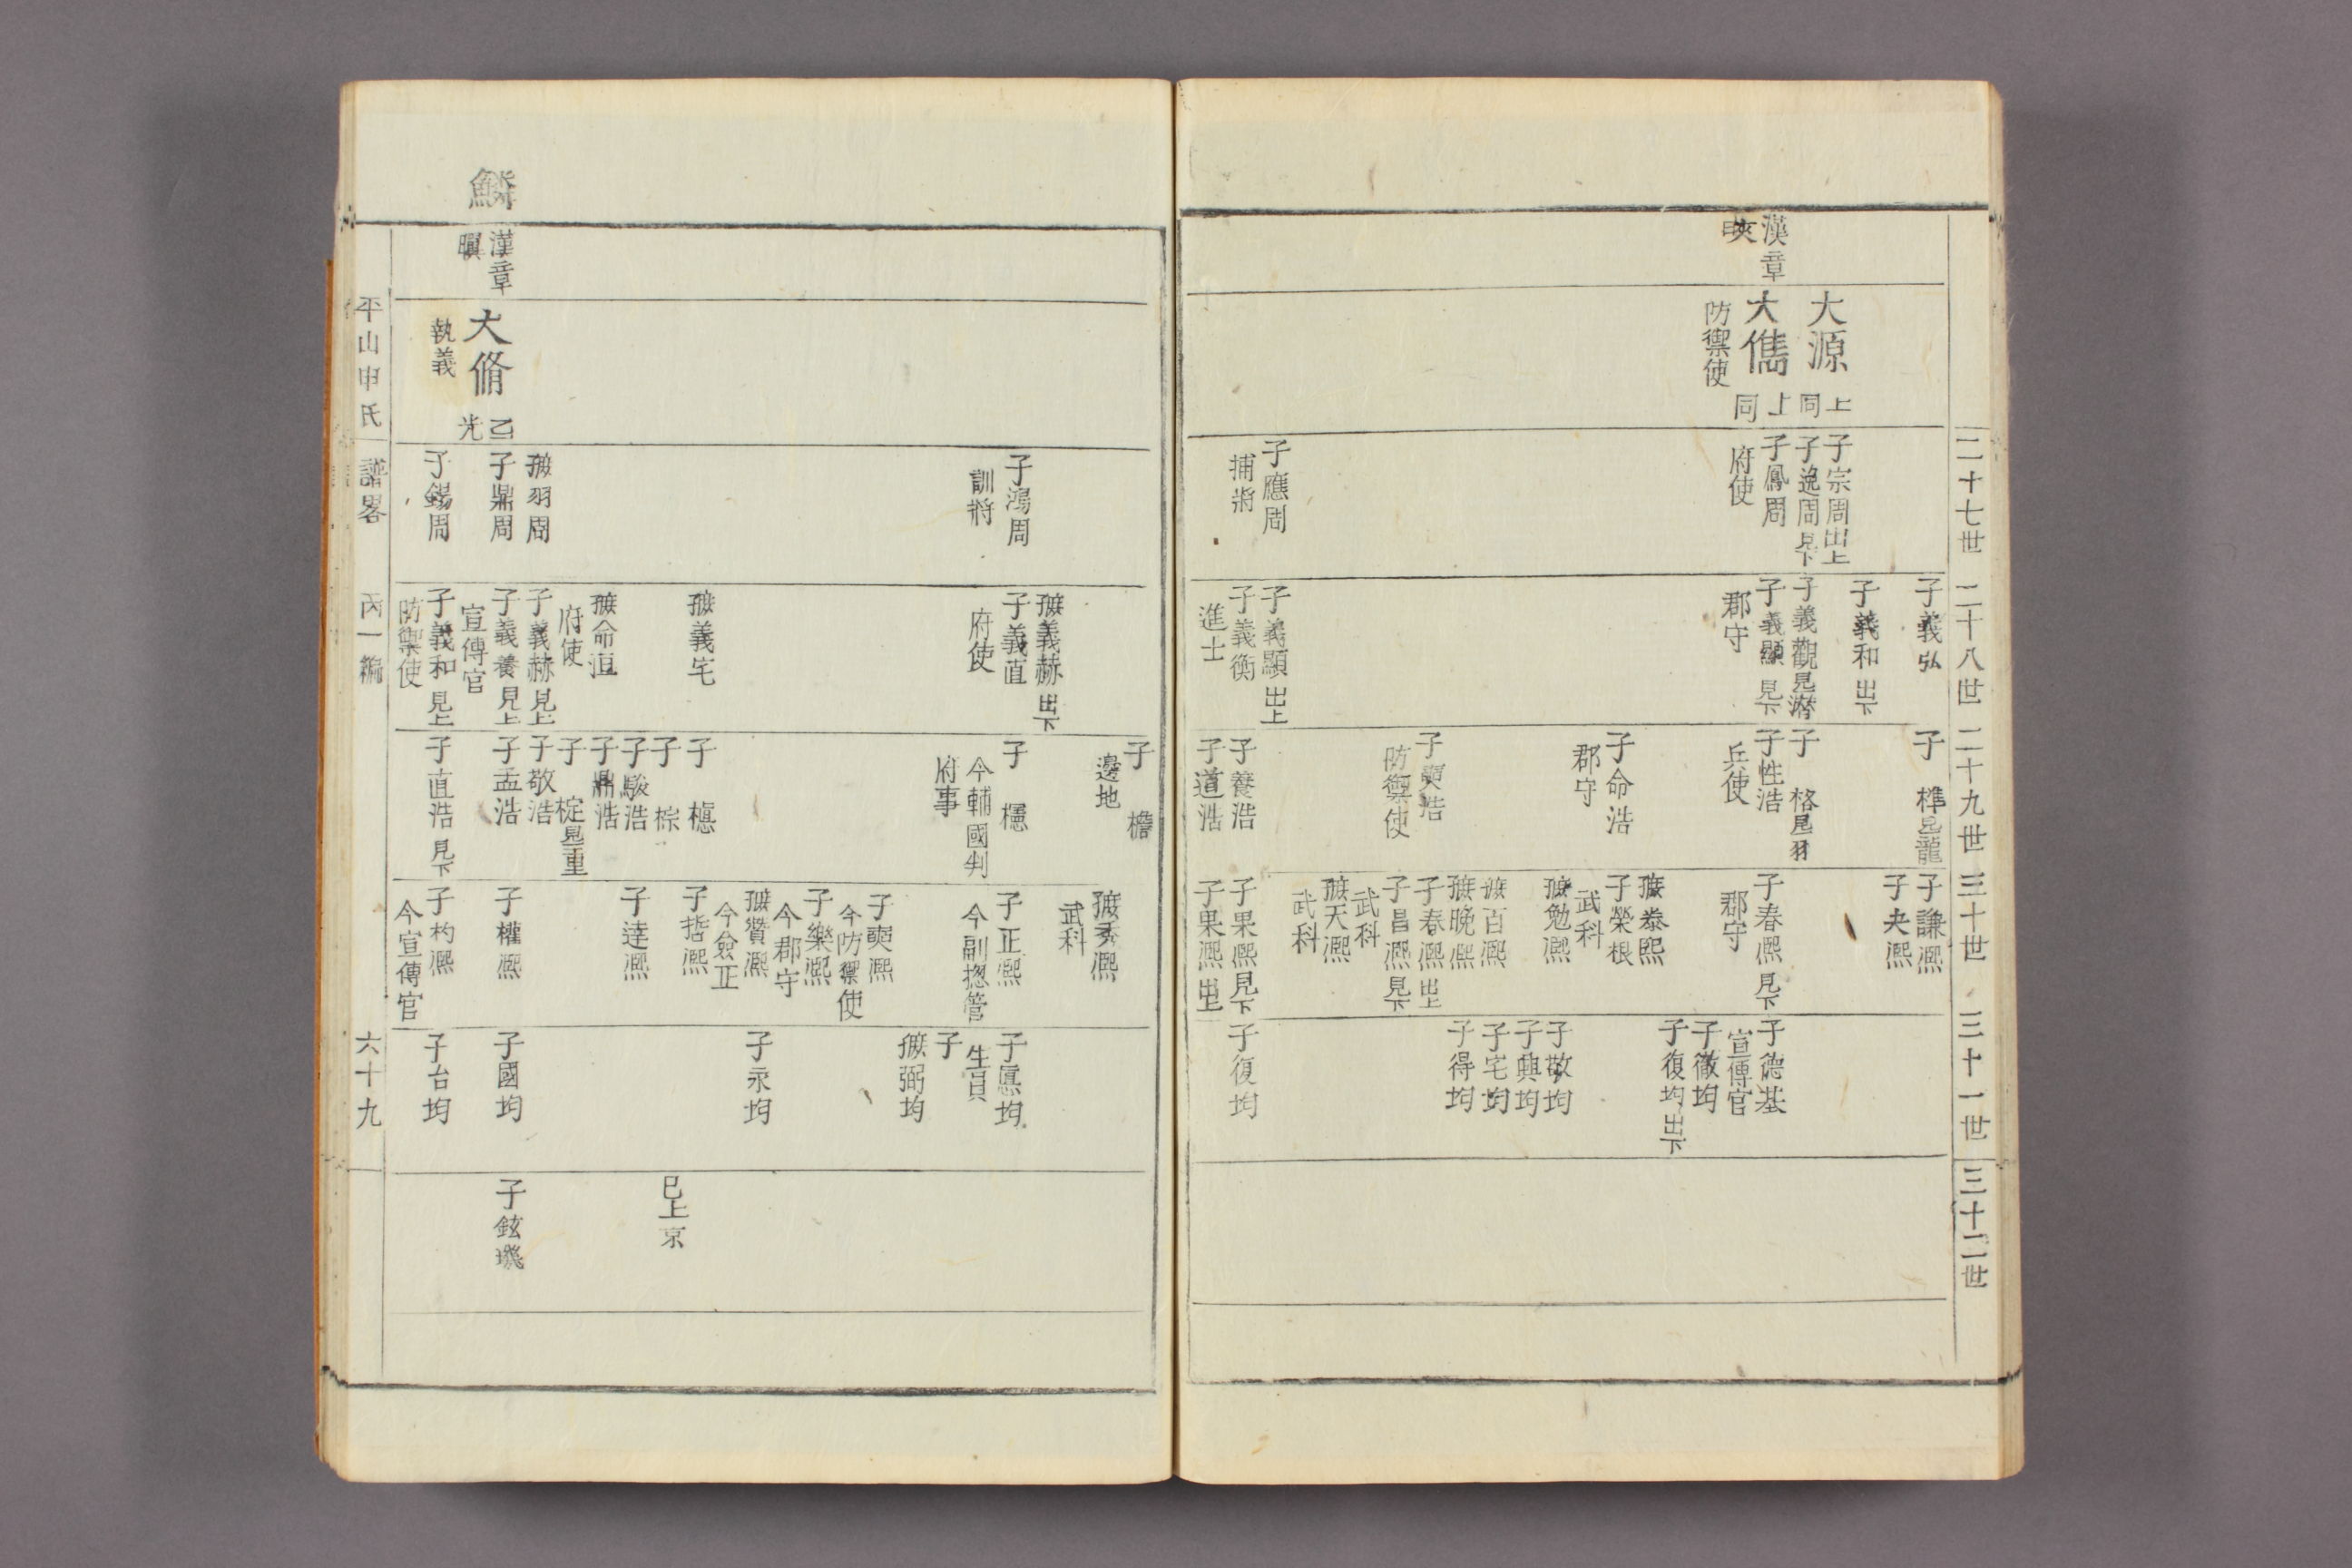 二十七世
二十八世
二十九世
三十世
三十一世
三十二世
漢章
大源
上同
大儁
上同
防禦使
子宗周出上
子逸周見下
子鳳周
府使
子應周
捕將
子義弘
子義和出下
子義觀見潛
子義顯見下
郡守
子義顯出上
子義衡
進士
子格見羽
子性浩
兵使
子命浩
郡守
子奭浩
防禦使
子養浩
子道浩
子謙凞
子夬凞
子春凞見下
郡守
泰熙
子榮根
武科
勉凞
百凞
晩凞
子春凞出上
子昌凞見下
武科
天凞
武科
子果凞見下
子果凞出上
子德基
宣傳官
子徹均
子復均出下
子敬均
子興均
子宅均
子得均
子復均
鱗
漢章
大脩
乙光
執義
子鴻周
訓將
羽周
子鼎周
子錫周
義赫出下
子義直
府使
義宅
命洹
府使
子義赫見上
子義養見上
宣傳官
子義和見上
防禦使
子檐
邊地
子櫶
今輔國判
府事
子棕
子駿浩
子鼎浩
子椗見重
子敬浩
子孟浩
子直浩見下
秀凞
武科
子正凞
今副摠管
子奭凞
今防禦使
子樂凞
今郡守
贊凞
今僉正
子喆凞
子達凞
子權凞
子杓凞
今宣傳官
子悳均
生員
子
弼均
子永均
子國均
子台均
已上京
子鉉璣
平山申氏
譜畧
丙一編
六十九